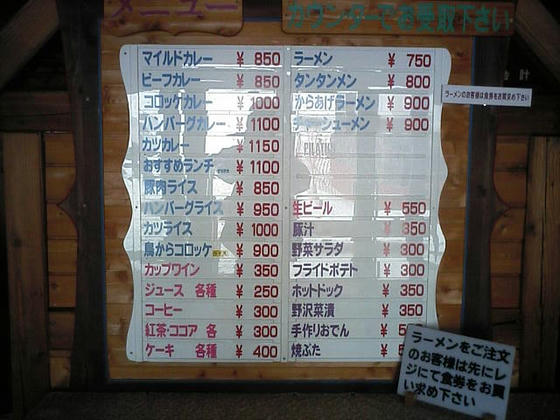 メニュー
カウンターでお受取下さい
マイルドカレー ¥ 850
ビーフカレー ¥ 850
コロッケカレー ¥ 1000
ハンバーグカレー ¥ 1100
カツカレー ¥ 1150
おすすめランチ ¥ 1100
豚肉ライス ¥ 850
ハンバーグライス ¥ 950
カツライス ¥ 1000
鳥からコロッケ ¥ 900
カップワイン ¥ 350
ジュース 各種 ¥ 250
コーヒー ¥ 300
紅茶・ココア 各 ¥ 300
ケーキ 各種 ¥ 400
ラーメン ¥ 750
タンタンメン ¥ 800
からあげラーメン ¥ 900
チャーシューメン ¥ 900
生ビール ¥ 550
豚汁 ¥ 350
野菜サラダ ¥ 300
フライドポテト ¥ 300
ホットドック ¥ 350
野沢菜漬 ¥ 350
手作りおでん ¥
焼ぶた ¥
計
ラーメンのお客様は食券をお買求め下さい
ラーメンをご注文
のお客様は先にレ
ジにて食券をお買
い求め下さい